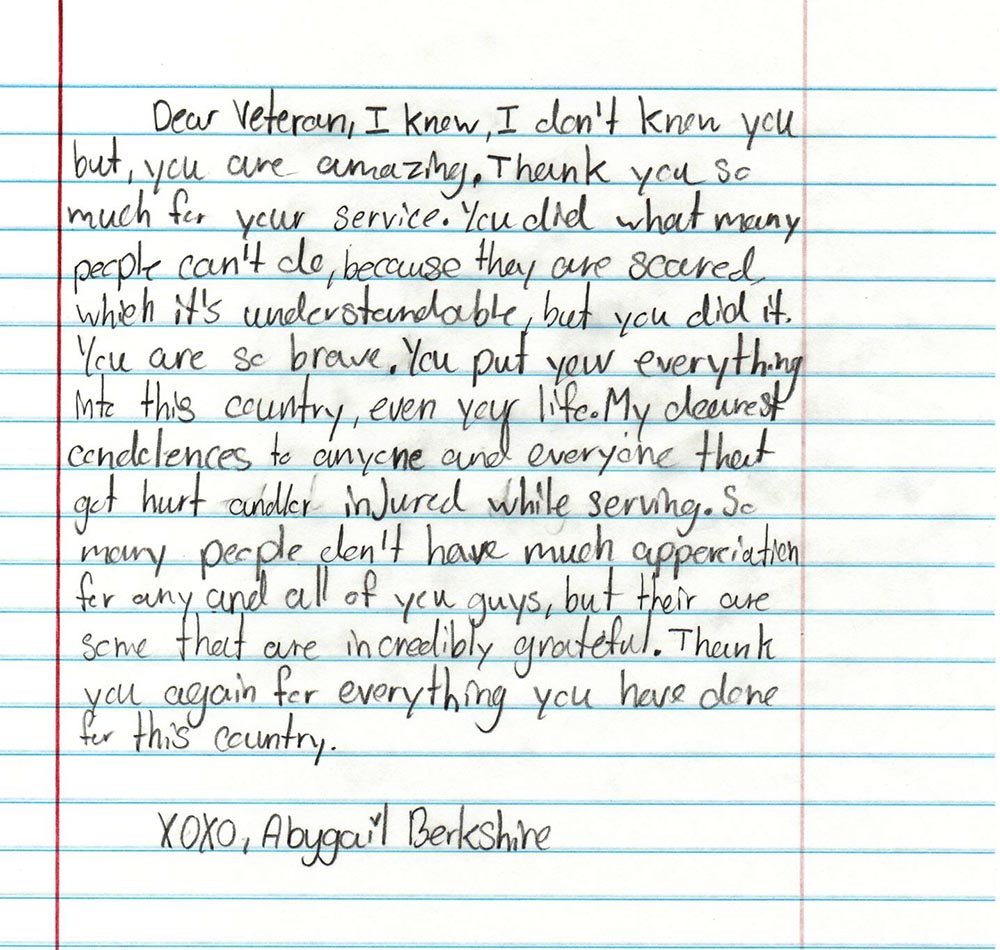 Dear Veteran, I know, I don't know you
but, you are amazing. Thank you so
much for your service. You did what many
people can't do, because they are scared
which it's understandable, but you did it.
You are so brave. You put your everything
into this country, even your life. My dearest
condolences to anyone and everyone that
got hurt and/or injured while serving. So
many people don't have much apperciation
for any and all of you guys, but their are
some that are incredibly grateful. Thank
you again for everything you have done
for this country.
XOXO, Abygail Berkshire